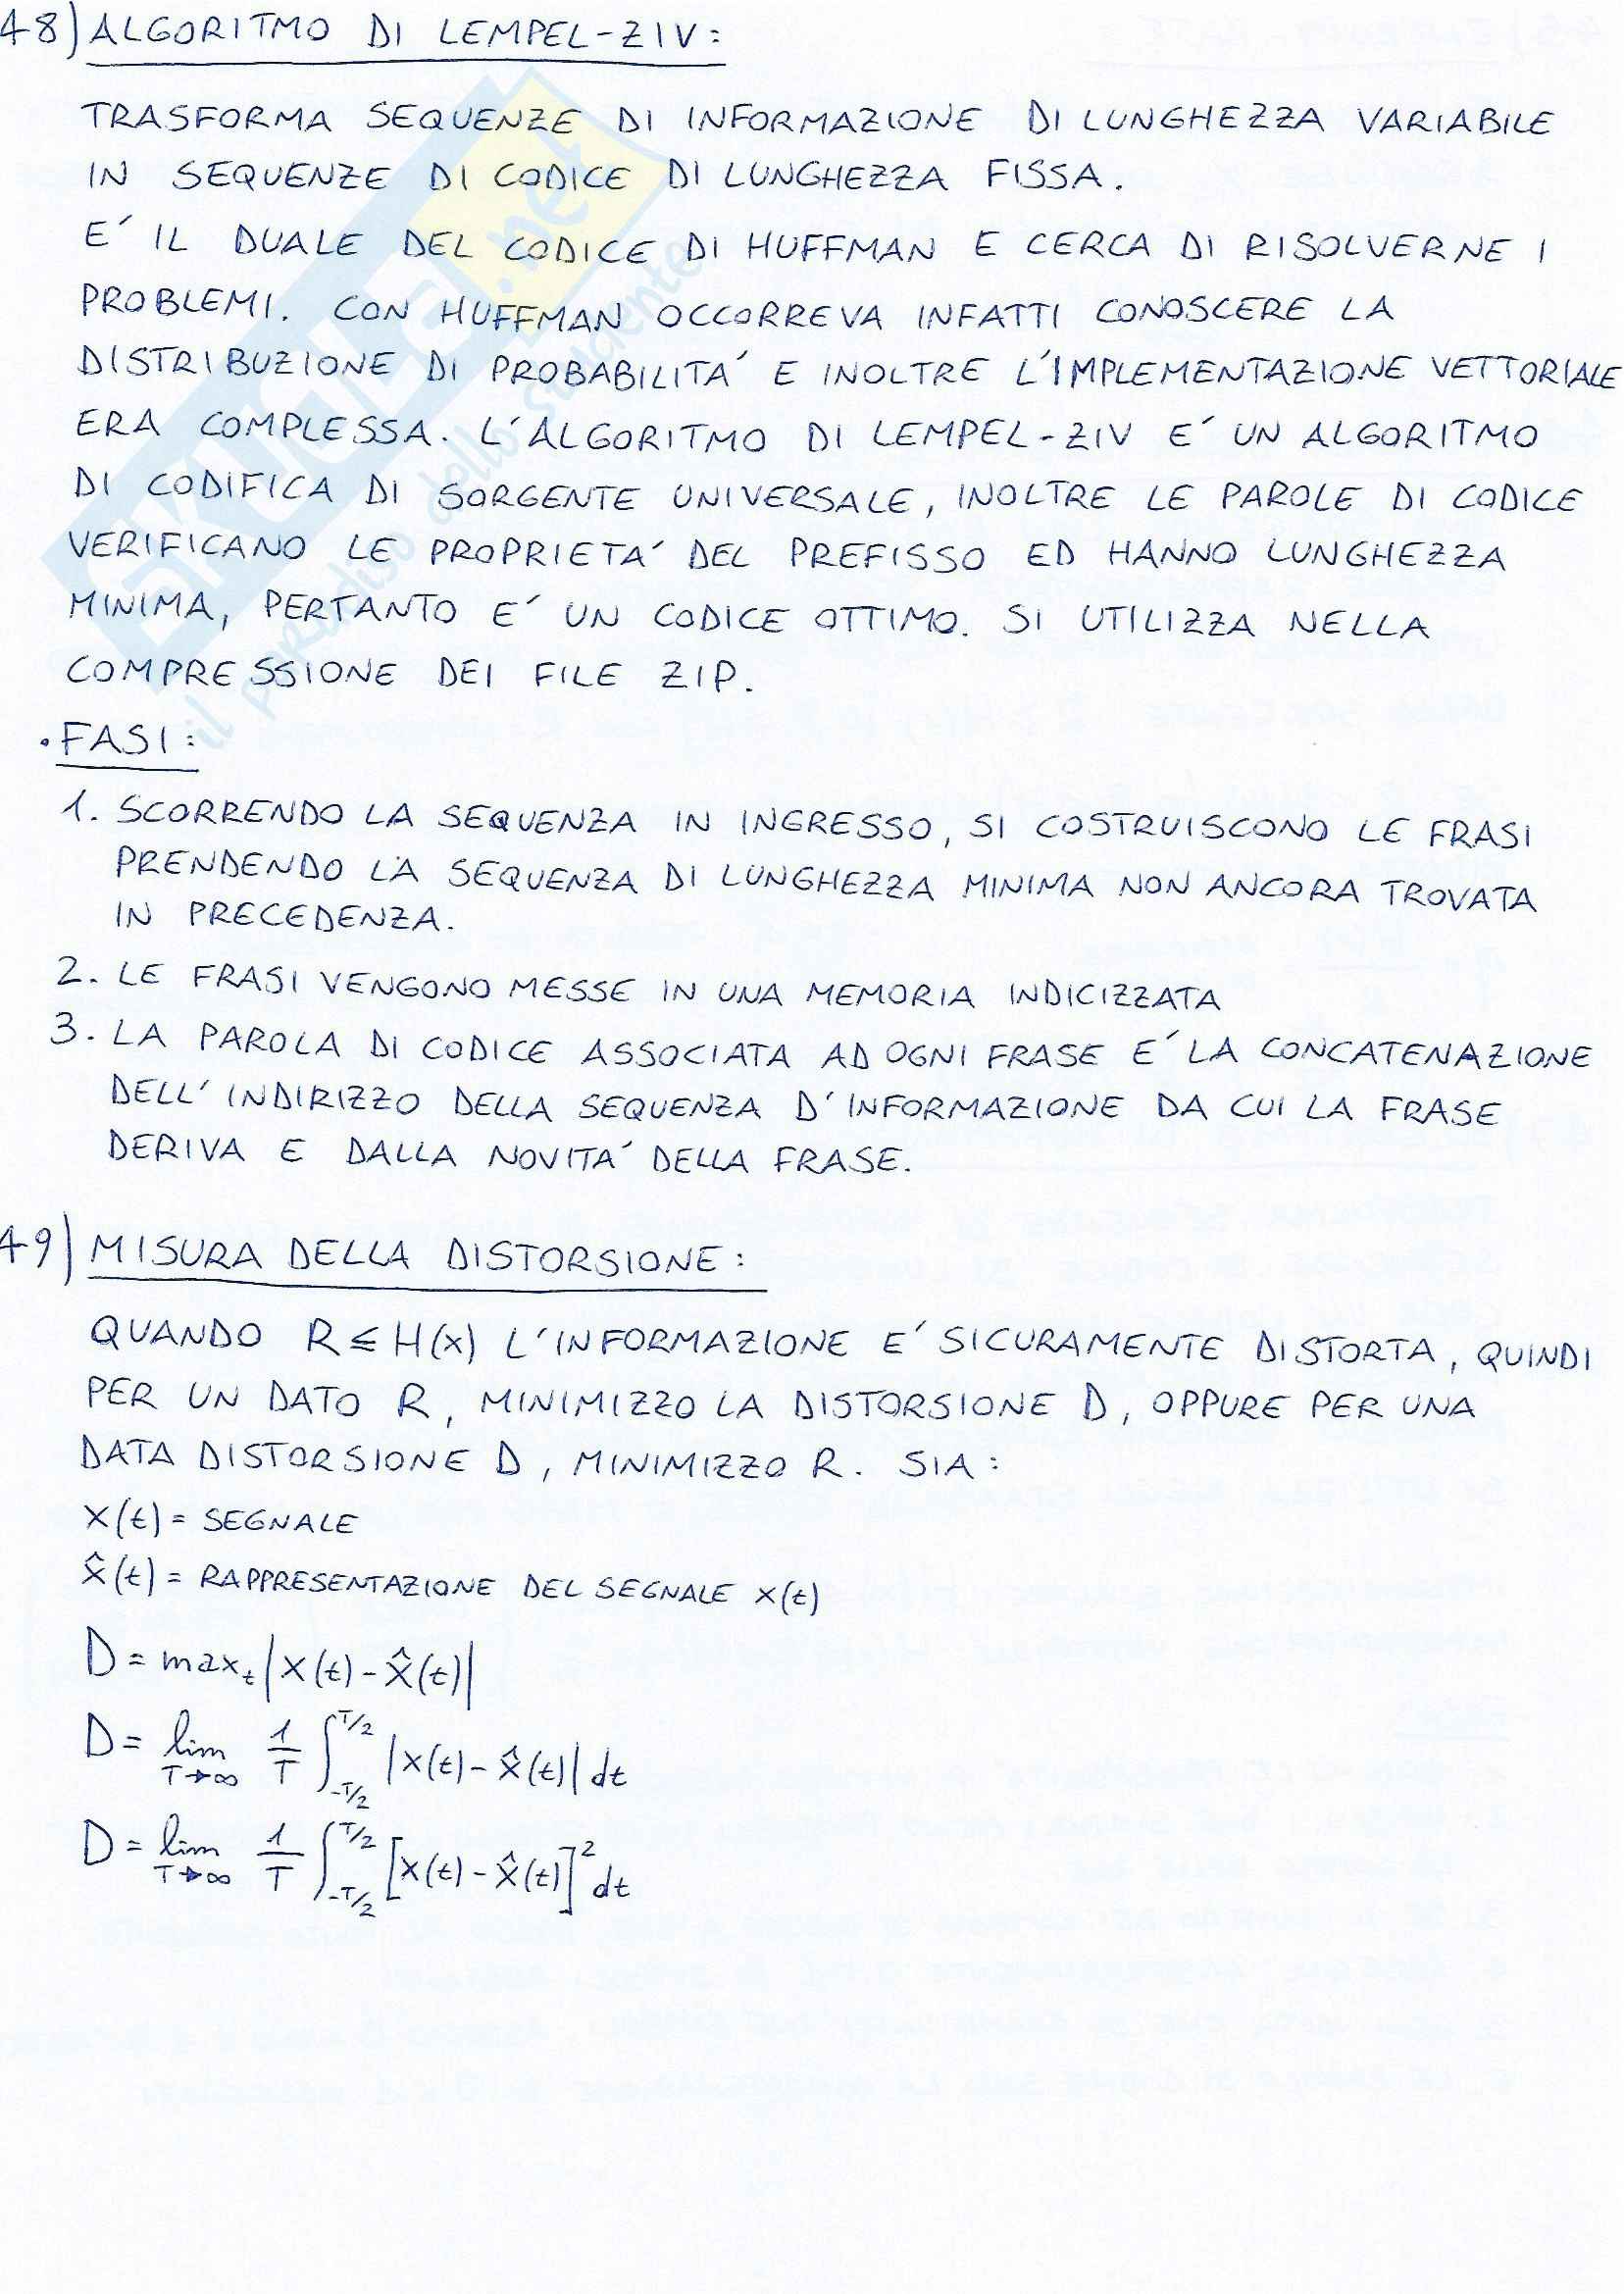 48) ALGORITMO DI LEMPEL-ZIV:
TRASFORMA SEQUENZE DI INFORMAZIONE DI LUNGHEZZA VARIABILE
IN SEQUENZE DI CODICE DI LUNGHEZZA FISSA.
E' IL DUALE DEL CODICE DI HUFFMAN E CERCA DI RISOLVERNE I
PROBLEMI. CON HUFFMAN OCCORREVA INFATTI CONOSCERE LA
DISTRIBUZIONE DI PROBABILITA' E INOLTRE L'IMPLEMENTAZIONE VETTORIALE
ERA COMPLESSA. L'ALGORITMO DI LEMPEL-ZIV E' UN ALGORITMO
DI CODIFICA DI SORGENTE UNIVERSALE, INOLTRE LE PAROLE DI CODICE
VERIFICANO LE PROPRIETA' DEL PREFISSO ED HANNO LUNGHEZZA
MINIMA, PERTANTO E' UN CODICE OTTIMO. SI UTILIZZA NELLA
COMPRESSIONE DEI FILE ZIP.
• FASI:
1. SCORRENDO LA SEQUENZA IN INGRESSO, SI COSTRUISCONO LE FRASI
PRENDENDO LA SEQUENZA DI LUNGHEZZA MINIMA NON ANCORA TROVATA
IN PRECEDENZA.
2. LE FRASI VENGONO MESSE IN UNA MEMORIA INDICIZZATA
3. LA PAROLA DI CODICE ASSOCIATA AD OGNI FRASE E' LA CONCATENAZIONE
DELL'INDIRIZZO DELLA SEQUENZA D'INFORMAZIONE DA CUI LA FRASE
DERIVA E DALLA NOVITA' DELLA FRASE.
49) MISURA DELLA DISTORSIONE:
QUANDO R ≤ H(x) L'INFORMAZIONE E' SICURAMENTE DISTORTA, QUINDI
PER UN DATO R, MINIMIZZO LA DISTORSIONE D, OPPURE PER UNA
DATA DISTORSIONE D, MINIMIZZO R. SIA:
x(t) = SEGNALE
x̂(t) = RAPPRESENTAZIONE DEL SEGNALE x(t)
D = max_t |x(t) - x̂(t)|
D = lim_{T→∞} 1/T ∫_{-T/2}^{T/2} |x(t) - x̂(t)| dt
D = lim_{T→∞} 1/T ∫_{-T/2}^{T/2} [x(t) - x̂(t)]² dt
SKUOLA.net
il paradiso dello studente